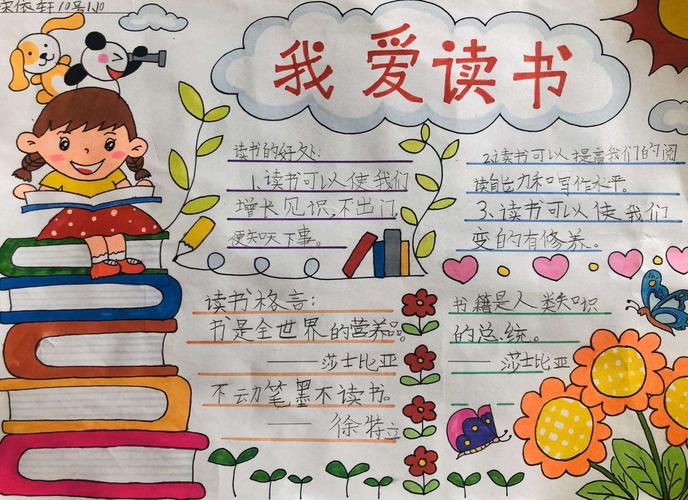 宋依轩 10号
我爱读书
读书的好处:
1、读书可以使我们
增长见识,不出门
便知天下事。
2、读书可以提高我们的阅
读能力和写作水平。
3、读书可以使我们
变的有修养。
读书格言:
书是全世界的营养品。
——莎士比亚
不动笔墨不读书。
——徐特立
书籍是人类知识
的总统。
——莎士比亚